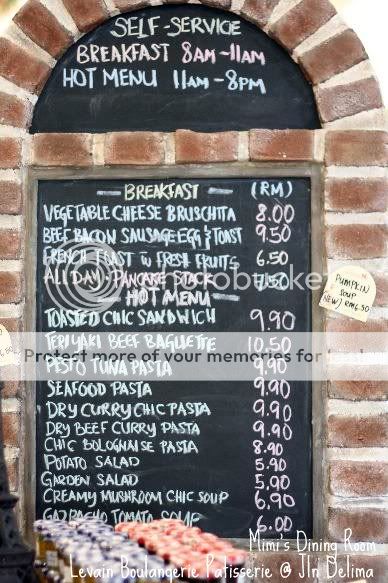 SELF-SERVICE
BREAKFAST 8AM-11AM
HOT MENU 11AM-8PM
BREAKFAST (RM)
VEGETABLE CHEESE BRUSCHITTA 8.00
BEEF BACON SAUSAGE EGG & TOAST 9.50
FRENCH TOAST W FRESH FRUITS 6.50
ALL DAY PANCAKE STACK 7.50
HOT MENU
TOASTED CHIC SANDWICH 9.90
TERIYAKI BEEF BAGUETTE 10.50
Protect more of your memories for
PESTO TUNA PASTA 9.90
SEAFOOD PASTA 9.90
DRY CURRY CHIC PASTA 9.90
DRY BEEF CURRY PASTA 9.90
CHIC BOLOGNAISE PASTA 8.90
POTATO SALAD 5.90
GARDEN SALAD 5.90
CREAMY MUSHROOM CHIC SOUP 6.90
GAZPACHO TOMATO SOUP 6.00
PUMPKIN
SOUP
NEW) RM6.50
Mimi's Dining Room
Levain Boulangerie Patisserie @ Jln Delima